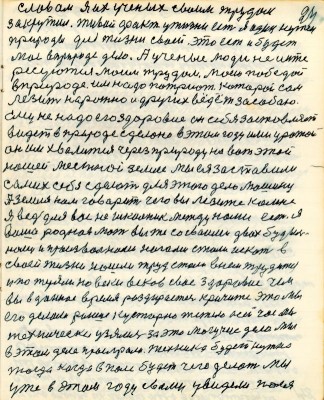 словам я их ученых своим трудом
закрутил. живой факт у жизни есть я один нужен
природы для жизни своей это есть и будет
мое в природе дело. А ученые люди не инте
ресуются моим трудом, моей победой
в природе, им надо патриот который сам
лезит на рожно и других ведёт за собою.
ему не надо его здоровие он себя заставляет
видеть в природе сделано в этом году
он им хвалится через природу на вот этой
нашей местной земле мы все заставили
самих себя сделать для этого дело машину
А земля нам говорить чего вы лезите ко мне
я ведь для вас не шкойник между нами есть я
ваша родная мать вы же со своими двох будны-
ми и призвольными ногами стали искать в
своей жизни нашли труд стали в нем трудит
и потеряли на веки веков свое здоровие чем
вы в данное время раздираетесь кричите это мы
его делали раньше кустарно теперь всей час мы
технически взялись за это могучие дело мы
в этом деле проиграли. техника будет нужна
тогда когда в поле будет чего делать мы
уже в этом году своему увидели поля